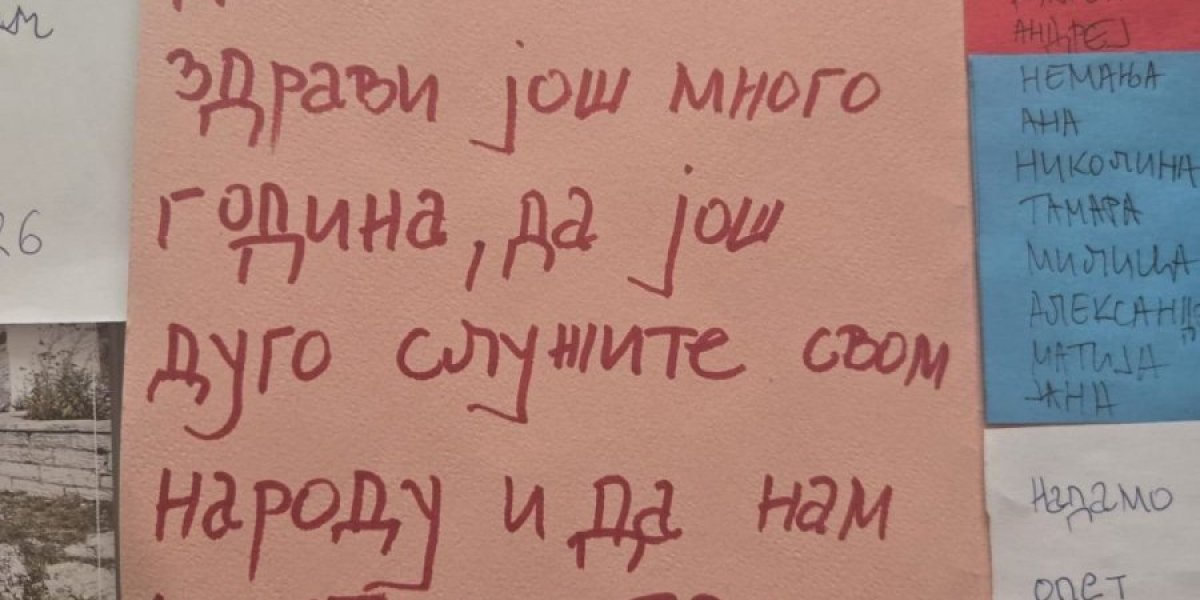 здрави још много
година, да још
дуго служите свом
народу и да нам
26
АНДРЕЈ
НЕМАЊА
АНА
НИКОЛИНА
ТАМАРА
МИЛИЦА
АЛЕКСАНД
МАТИЈА
ЈАНА
Надамо
опет